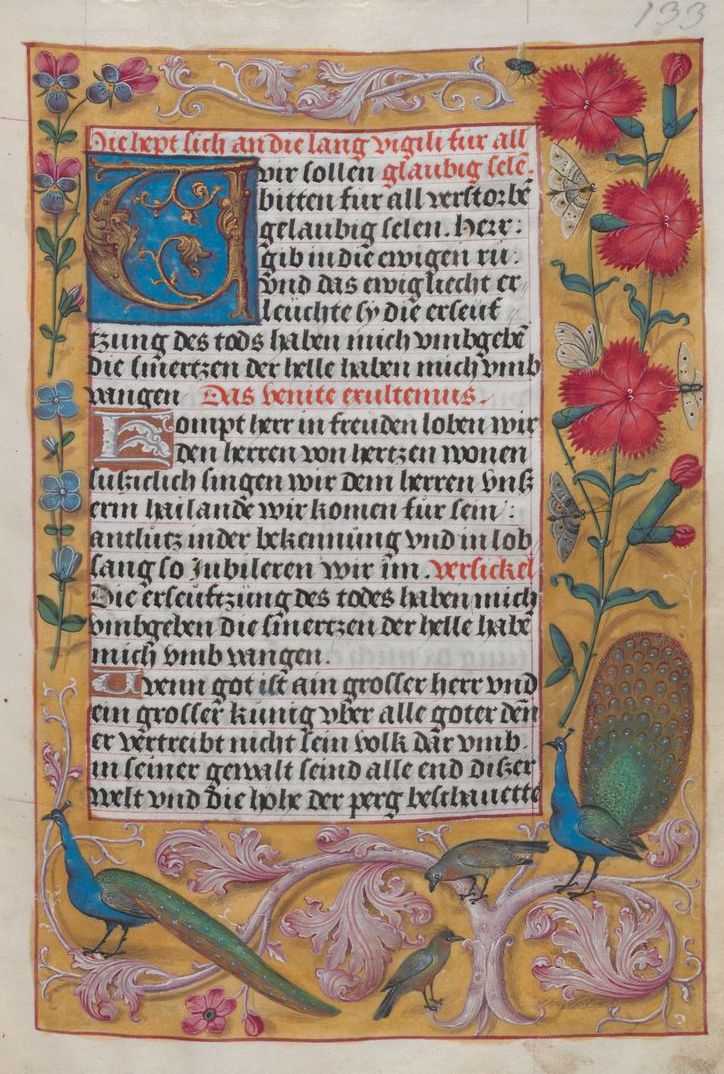 133
Hie hept sich an die lang vigili für all
wir sollen glaubig selē.
bitten für all verstorbē
gelaubig selen. Herr:
gib in die ewigen rů:
vnd das ewig liecht er
leüchte sy die erseüf
tzung des tods haben mich vmbgebē
die smertzen der helle haben mich vmb
vangen Das venite exultemus.
Kompt herr in freuden loben wir
den herren von hertzen wonen
singen wir dem herren vnß
erm hailande wir komen für sein:
antlutz in der bekennung vnd in lob
sang so Jubileren wir im. versickel
Die erseüftzung des todes haben mich
vmbgeben die smertzen der helle habē
mich vmb vangen.
Wenn got ist ain grosser herr vnd
ein grosser kunig vber alle goter dēn
er vertreibt nicht sein volk dar vmb.
in seiner gewalt seind alle end dißer
welt vnd die hohe der perg beschauette